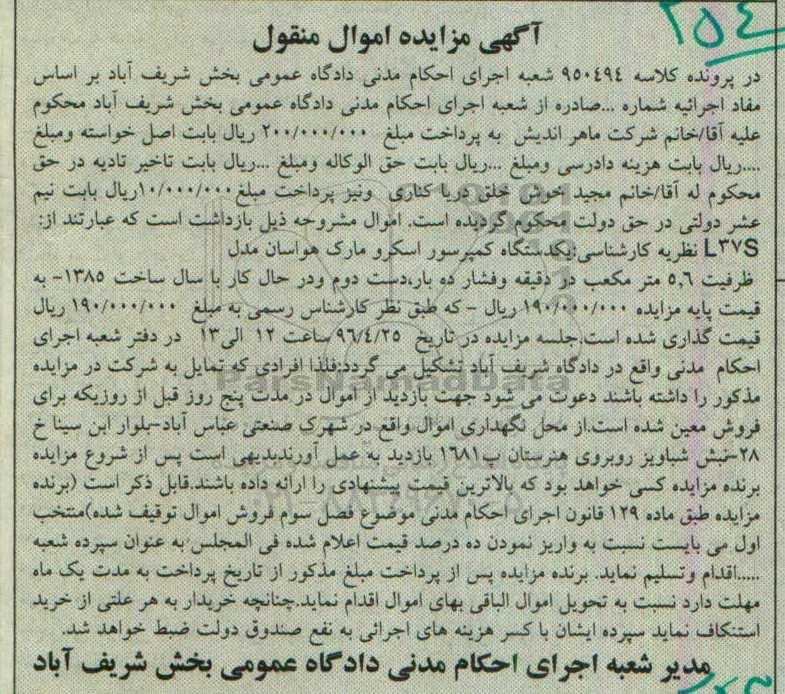 ۲۵۴
آگهی مزایده اموال منقول
در پرونده کلاسه ۹۵۰۴۹۴ شعبه اجرای احکام مدنی دادگاه عمومی بخش شریف آباد بر اساس
مفاد اجرائیه شماره ...صادره از شعبه اجرای احکام مدنی دادگاه عمومی بخش شریف آباد محکوم
علیه آقا/خانم شرکت ماهر اندیش به پرداخت مبلغ ۲۰۰/۰۰۰/۰۰۰ ریال بابت اصل خواسته ومبلغ
....ریال بابت هزینه دادرسی ومبلغ ...ریال بابت حق الوکاله ومبلغ ...ریال بابت تاخیر تادیه در حق
محکوم له آقا/خانم مجید خوش خلق دریا کناری ونیز پرداخت مبلغ ۱۰/۰۰۰/۰۰۰ریال بابت نیم
عشر دولتی در حق دولت محکوم گردیده است. اموال مشروحه ذیل بازداشت است که عبارتند از:
L۳۷S نظریه کارشناسی:یکدستگاه کمپرسور اسکرو مارک هواسان مدل
ظرفیت ۵,۶ متر مکعب در دقیقه وفشار ده بار،دست دوم ودر حال کار با سال ساخت ۱۳۸۵- به
قیمت پایه مزایده ۱۹۰/۰۰۰/۰۰۰ ریال - که طبق نظر کارشناس رسمی به مبلغ ۱۹۰/۰۰۰/۰۰۰ ریال
قیمت گذاری شده است.جلسه مزایده در تاریخ ۹۶/۴/۲۵ ساعت ۱۲ الی۱۳ در دفتر شعبه اجرای
احکام مدنی واقع در دادگاه شریف آباد تشکیل می گردد:فلذا افرادی که تمایل به شرکت در مزایده
مذکور را داشته باشند دعوت می شود جهت بازدید از اموال در مدت پنج روز قبل از روزیکه برای
فروش معین شده است.از محل نگهداری اموال واقع در شهرک صنعتی عباس آباد-بلوار ابن سینا خ
۲۸-نبش شباویز روبروی هنرستان پ۱۶۸۱ بازدید به عمل آورندبدیهی است پس از شروع مزایده
برنده مزایده کسی خواهد بود که بالاترین قیمت پیشنهادی را ارائه داده باشند.قابل ذکر است (برنده
مزایده طبق ماده ۱۲۹ قانون اجرای احکام مدنی موضوع فصل سوم فروش اموال توقیف شده)منتخب
اول می بایست نسبت به واریز نمودن ده درصد قیمت اعلام شده فی المجلس به عنوان سپرده شعبه
.....اقدام وتسلیم نماید. برنده مزایده پس از پرداخت مبلغ مذکور از تاریخ پرداخت به مدت یک ماه
مهلت دارد نسبت به تحویل اموال الباقی بهای اموال اقدام نماید.چنانچه خریدار به هر علتی از خرید
استنکاف نماید سپرده ایشان با کسر هزینه های اجرائی به نفع صندوق دولت ضبط خواهد شد.
مدیر شعبه اجرای احکام مدنی دادگاه عمومی بخش شریف آباد
ParsNamadData